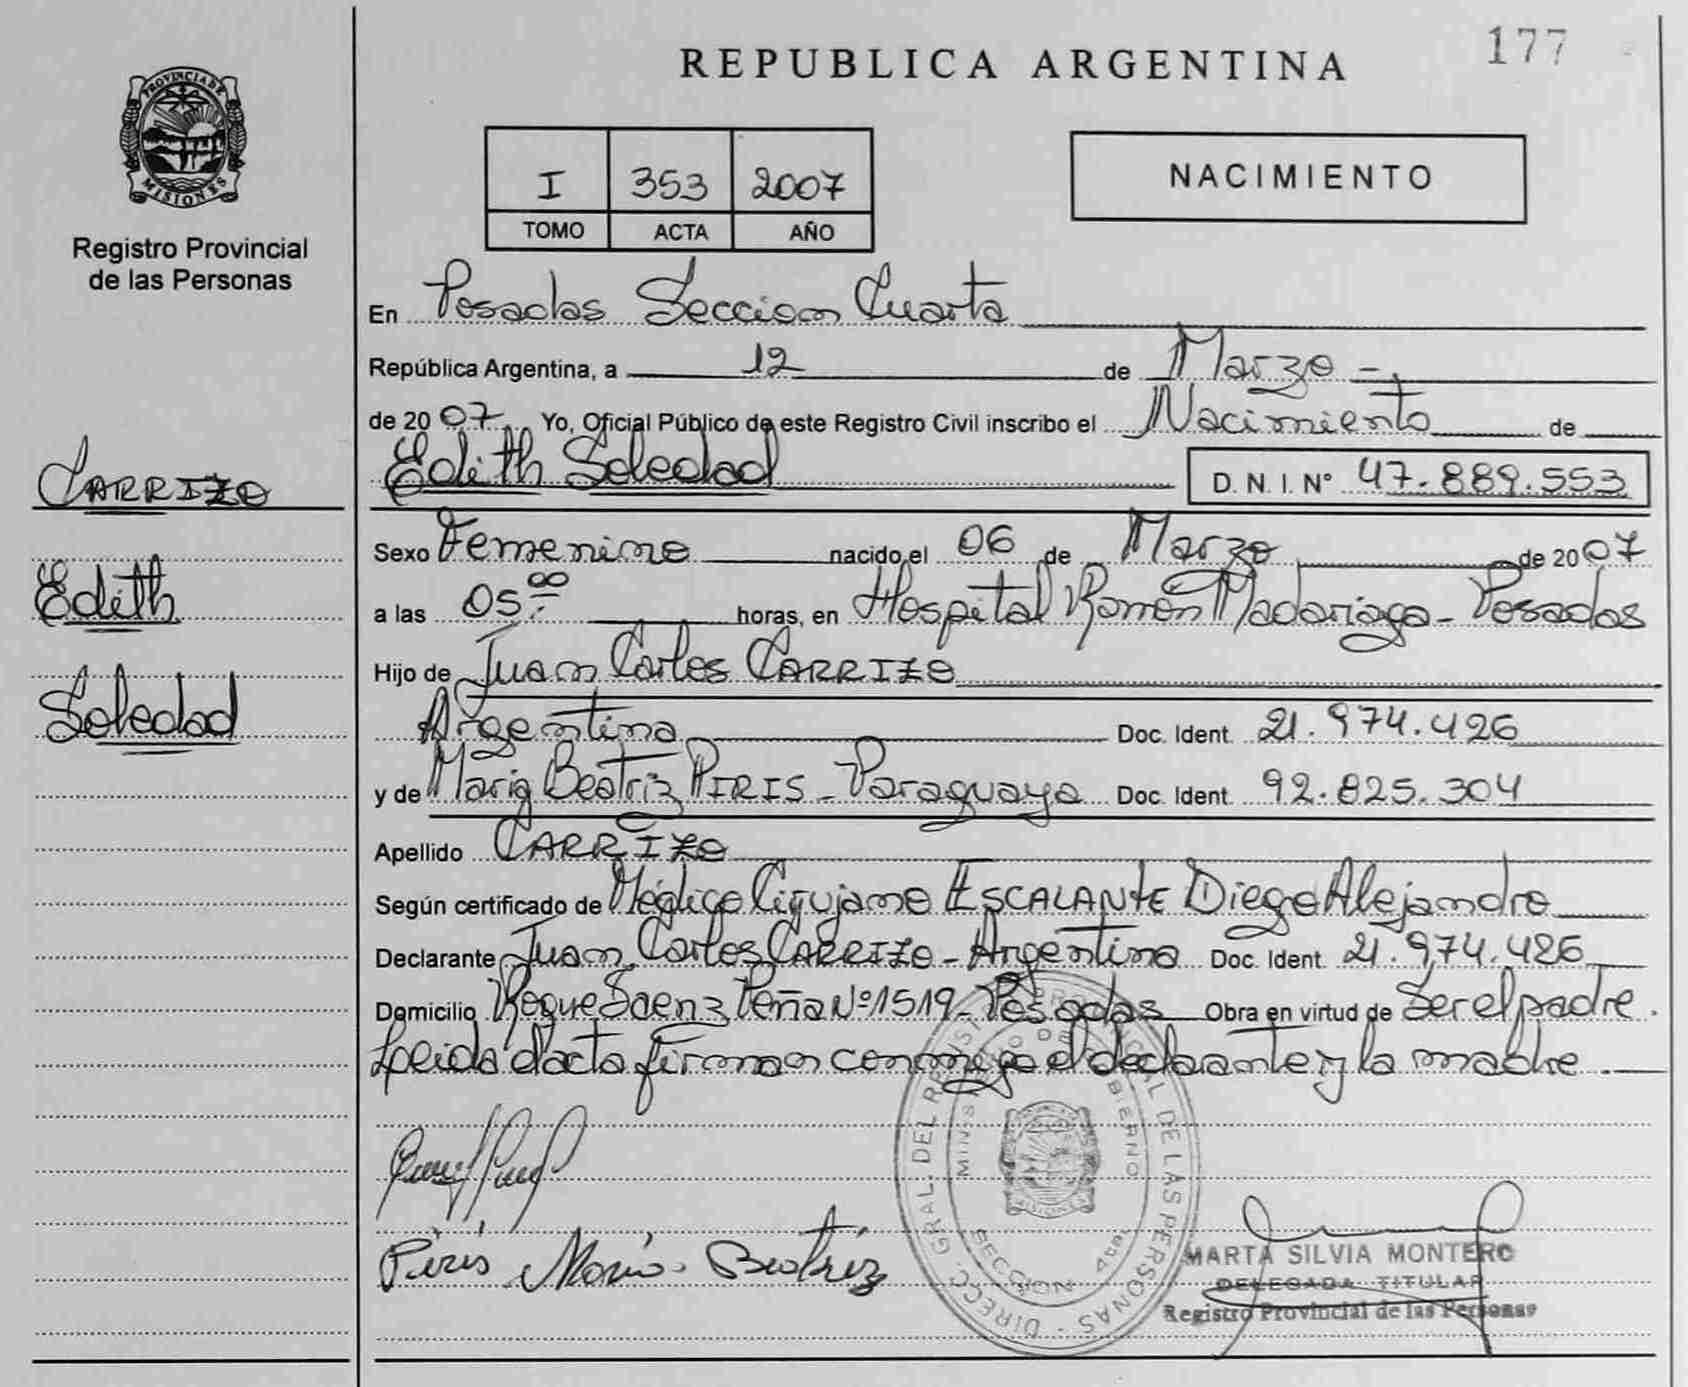 REPUBLICA ARGENTINA
177
PROVINCIA DE
MISIONES
Registro Provincial
de las Personas
I 353 2007
TOMO ACTA AÑO
NACIMIENTO
En Posadas Seccion Cuarta
República Argentina, a 12 de Marzo -.
de 2007 Yo, Oficial Público de este Registro Civil inscribo el Nacimiento de
Edith Soledad D. N. I. N° 47.889.553
CARRIZO
Edith
Soledad
Sexo Femenino nacido el 06 de Marzo de 2007
a las 05:00 horas, en Hospital Ramón Madariaga - Posadas
Hijo de Juan Carlos CARRIZO
Argentina Doc. Ident. 21.974.426
y de Maria Beatriz PIRIS - Paraguaya Doc. Ident. 92.825.304
Apellido CARRIZO
Según certificado de Médico Cirujano ESCALANTE Diego Alejandro
Declarante Juan Carlos CARRIZO - Argentina Doc. Ident. 21.974.426
Domicilio Roque Saenz Peña Nº 1519 - Posadas Obra en virtud de Ser el padre.
Leida el acta firman conmigo el declarante y la madre.
Piris Maria Beatriz
DIRECC. GRAL. DEL REGISTRO PROVINCIAL DE LAS PERSONAS
MINISTERIO DE GOBIERNO
SECCIÓN 4ta
MISIONES
MARTA SILVIA MONTERO
DELEGADA TITULAR
Registro Provincial de las Personas